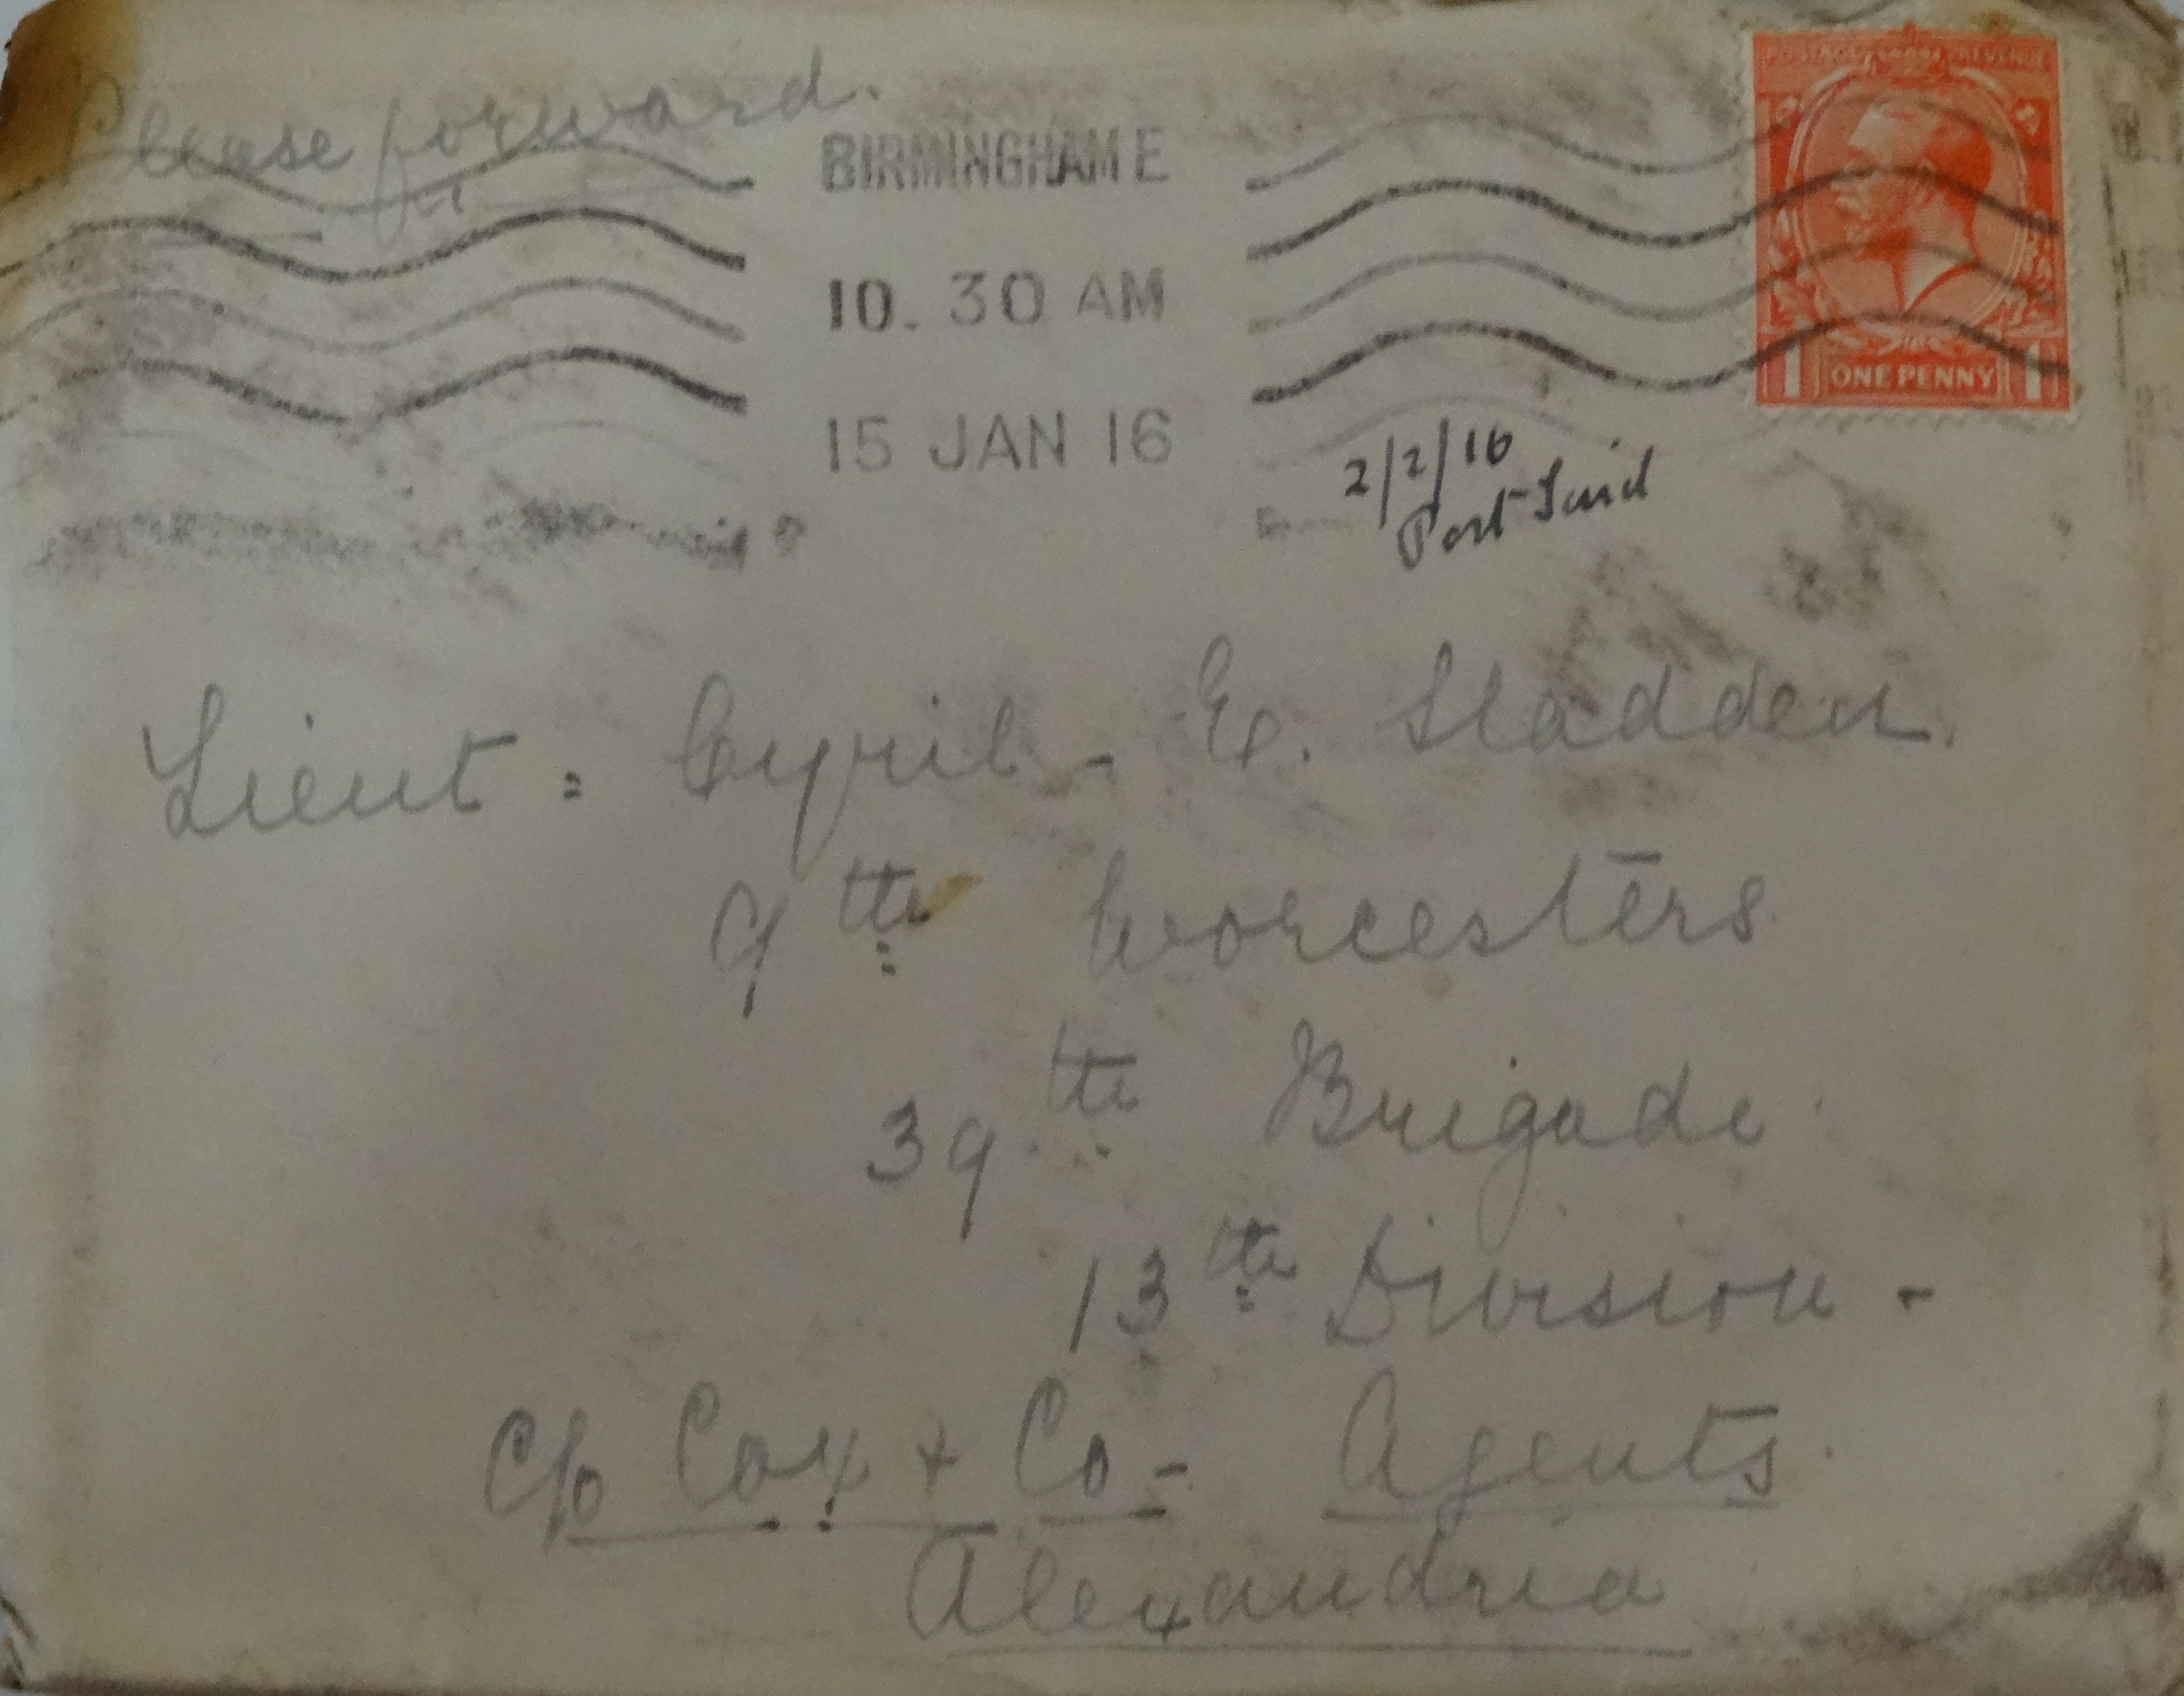 Please forward.
POSTAGE REVENUE
BIRMINGHAM E
10. 30 AM
15 JAN 16
1 ONE PENNY 1
2/2/16
Port Said
Lieut: Cyril - E. Sladden.
9th Worcesters
39th Brigade.
13th Division -
c/o Cox + Co - Agents.
Alexandria